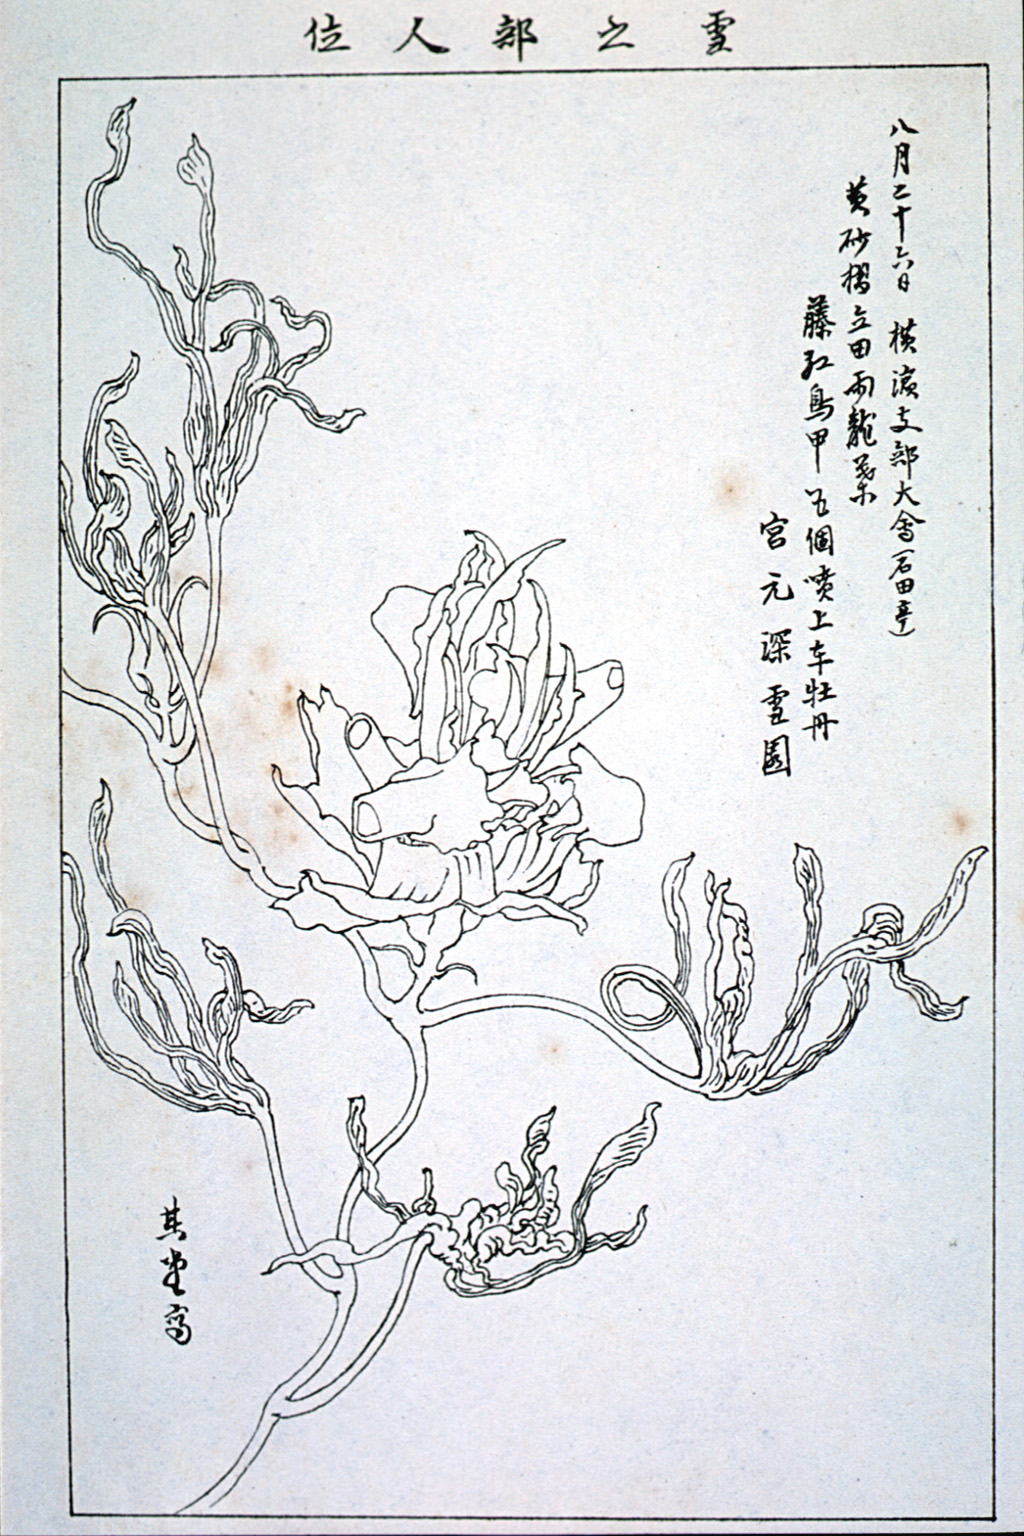 雪之部人位
八月二十六日 横濱支部大會(石田亭)
黄砂摺立田雨龍葉
藤紅鳥甲五個噴上車牡丹
宮元深雪園
其堂寫